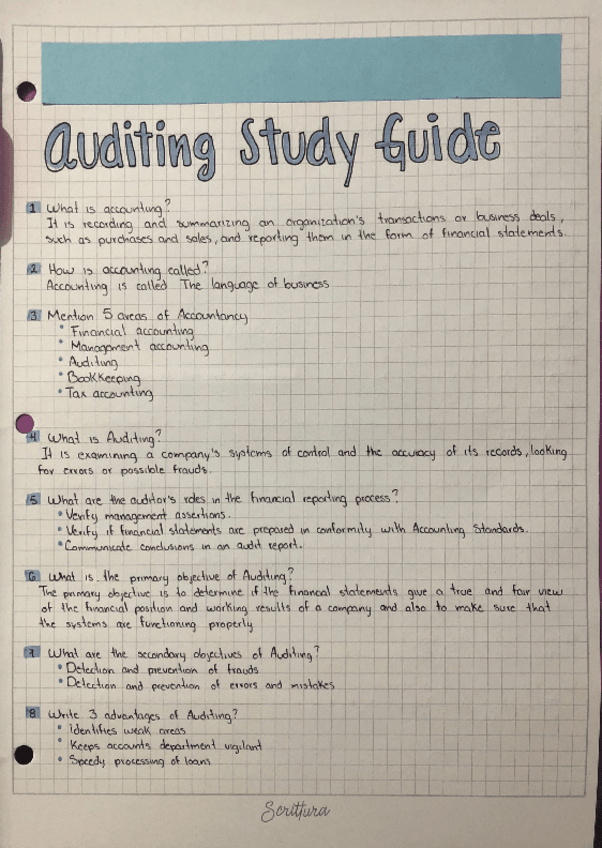 Auditing Study Guide
1 What is accounting?
It is recording and summarizing an organization's transactions or business deals,
such as purchases and sales, and reporting them in the form of financial statements.
2 How is accounting called?
Accounting is called The language of business
3 Mention 5 areas of Accountancy
• Financial accounting
• Management accounting
• Auditing
• Bookkeeping
• Tax accounting
4 What is Auditing?
It is examining a company's systems of control and the accuracy of its records, looking
for errors or possible frauds.
5 What are the auditor's roles in the financial reporting process?
• Verify management assertions.
• Verify if financial statements are prepared in conformity with Accounting Standards.
• Communicate conclusions in an audit report.
6 What is the primary objective of Auditing?
The primary objective is to determine if the financial statements give a true and fair view
of the financial position and working results of a company and also to make sure that
the systems are functioning properly
7 What are the secondary objectives of Auditing?
• Detection and prevention of frauds
• Detection and prevention of errors and mistakes
8 Write 3 advantages of Auditing?
• Identifies weak areas
• Keeps accounts department vigilant
• Speedy processing of loans
Scrittura